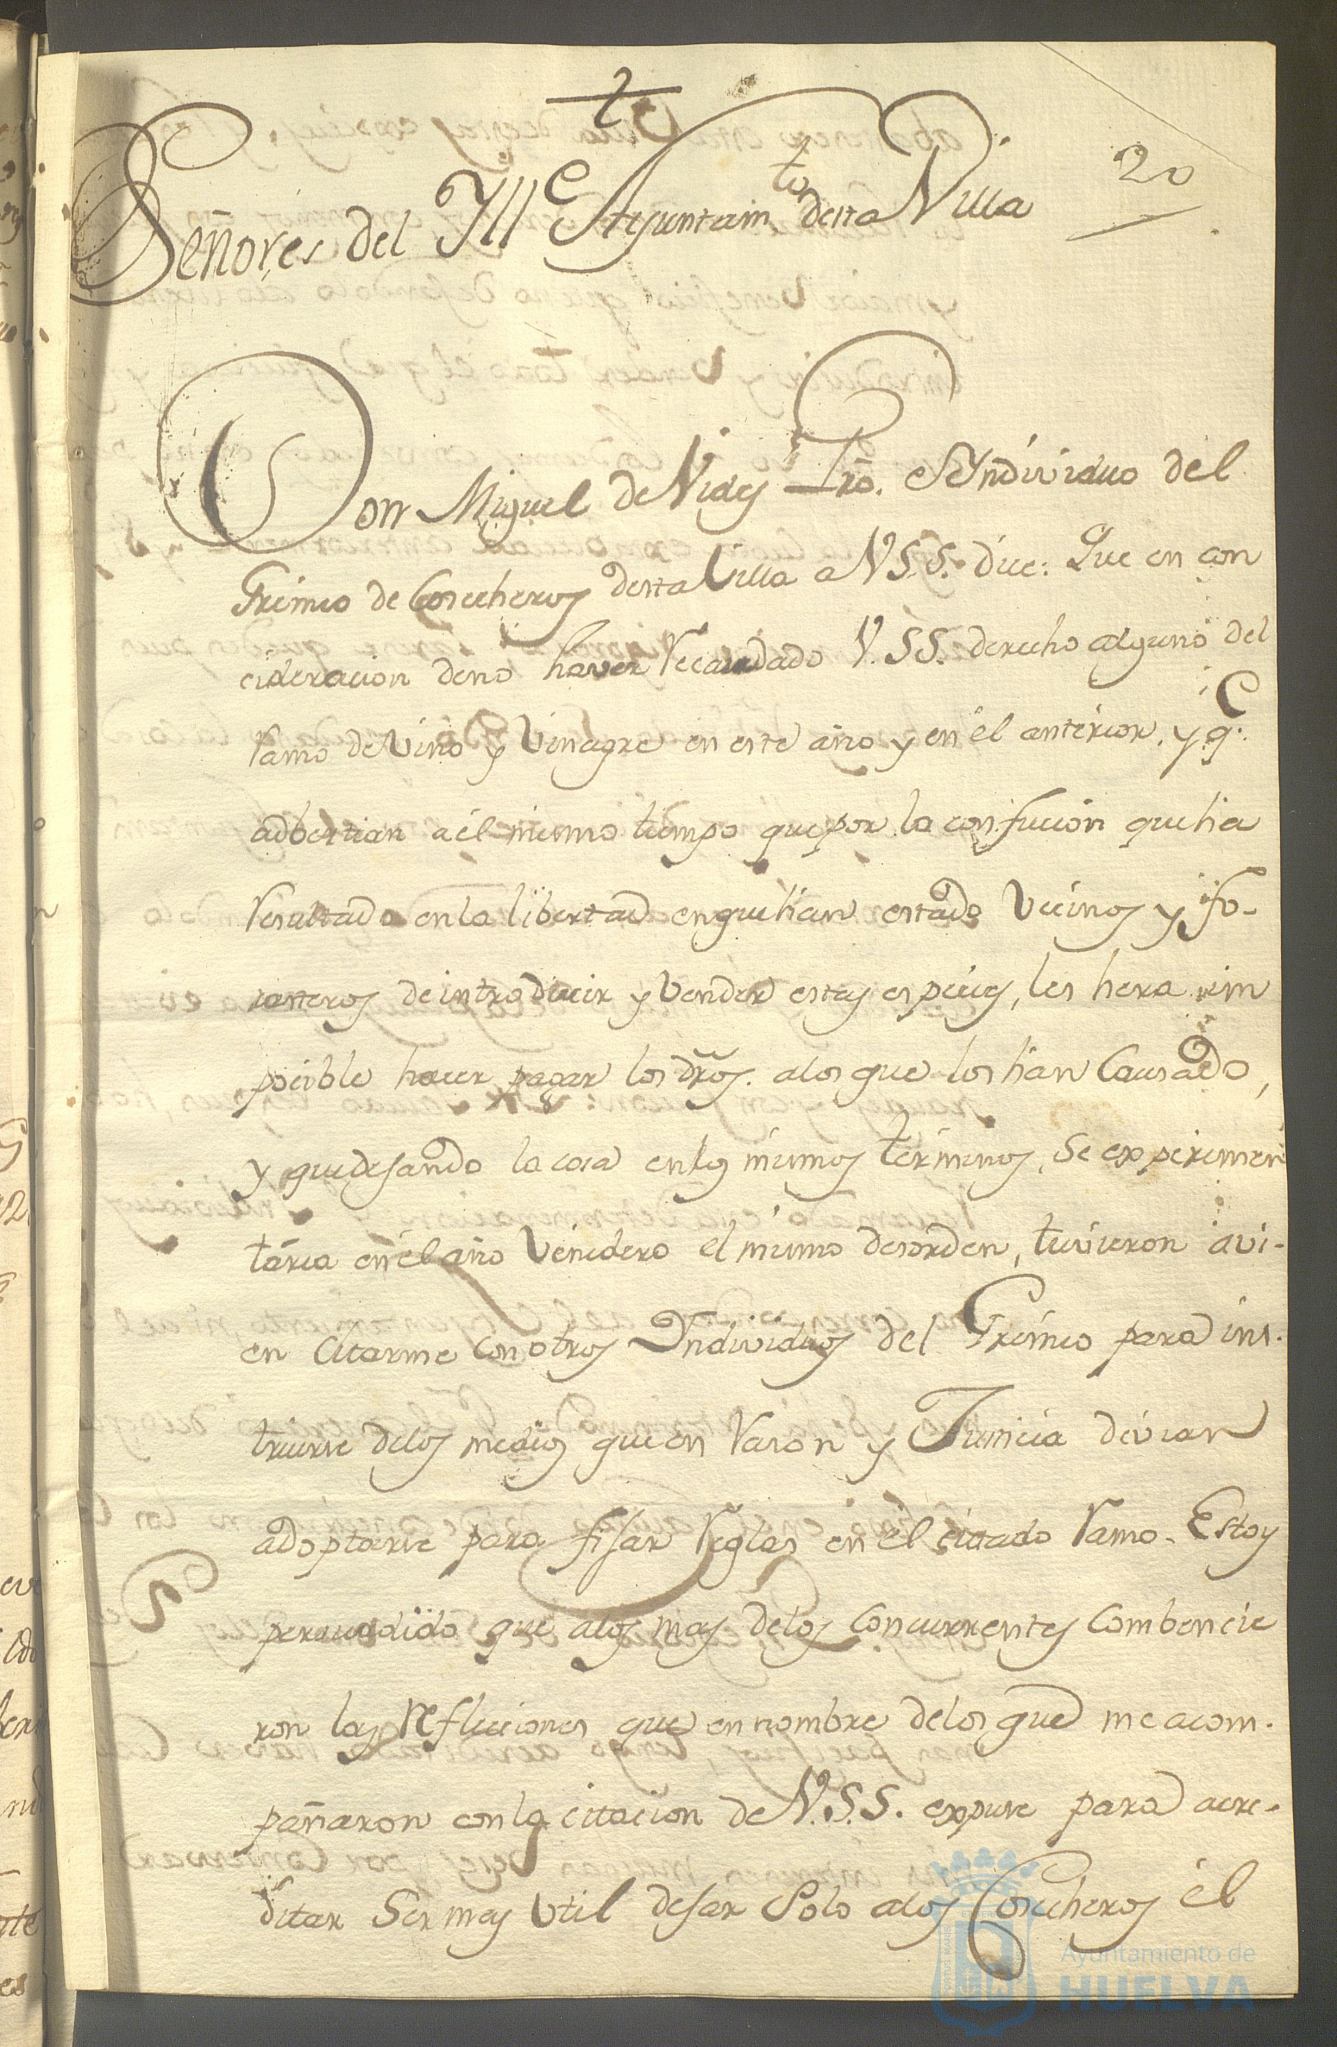 t
20
Señores del Ylle Ayuntamto desta Villa
Don Miguel de Vides Pro. e Yndividuo del
Grémio de Cosecheros desta Villa a V.S.S. dice: Que en con
cideracion deno haver Recaudado V.S.S. derecho alguno del
Ramo de Vino y Vinagre en este año y en él anterior, y qe.
adbertian a él mismo tiempo que por la confucion que ha
Resultado en la libertad en que han estado Vecinos y fo-
rasteros de introducir y Vender estas especies, les hera im
pocible hacer pagar los dros. a los que los han Causado,
y que desando la cosa en los mismos términos, Se experimen
taria en él año Venidero el mismo desorden, tuvieron a vi-
en Citarme Con otros Yndividuos del Grémio para ins-
truirse delos medios que en Rason y Justicia devian
adoptarse para fisar Reglas en él citado Ramo. Estoy
persuadido que alos mas delos Concurrentes Combencie
ron las Reflecciones que en nombre delos que me acom-
pañaron con la citacion de V.S.S. expuse para acre-
ditar Ser mas Util desar Solo alos Cosecheros él
Ayuntamiento de
HUELVA